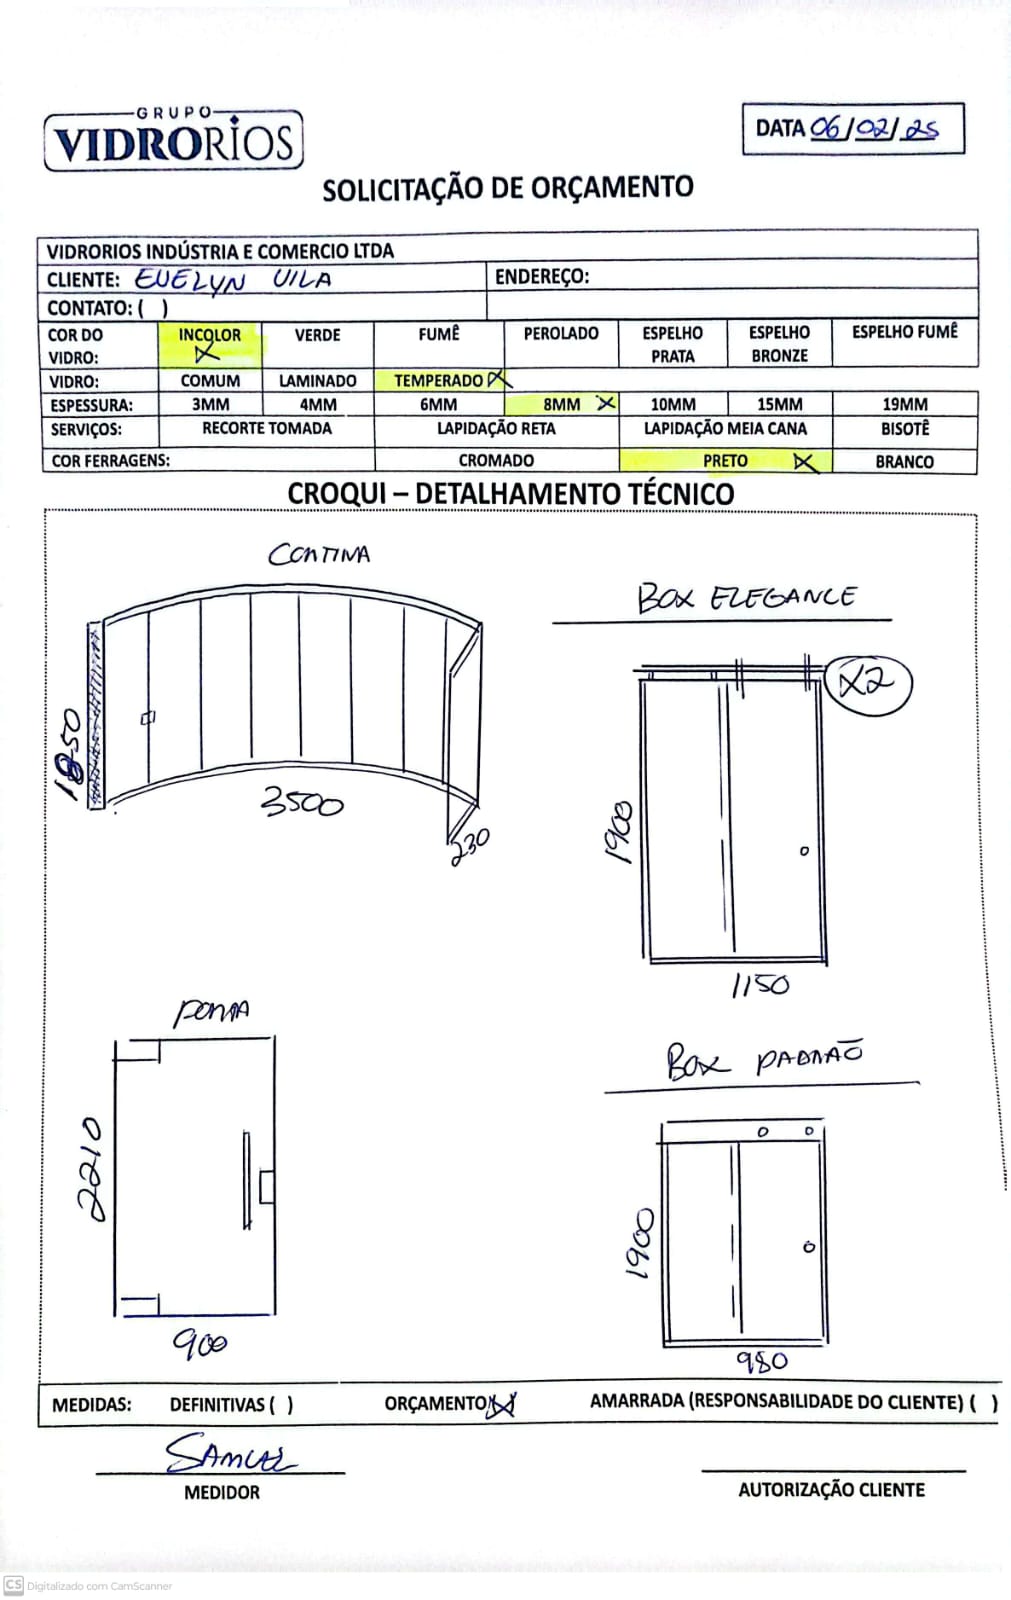 GRUPO
VIDRORIOS
DATA 06/02/25
SOLICITAÇÃO DE ORÇAMENTO
VIDRORIOS INDÚSTRIA E COMERCIO LTDA
CLIENTE: EVELYN VILA ENDEREÇO:
CONTATO: ( )
COR DO VIDRO: INCOLOR X VERDE FUMÊ PEROLADO ESPELHO PRATA ESPELHO BRONZE ESPELHO FUMÊ
VIDRO: COMUM LAMINADO TEMPERADO X
ESPESSURA: 3MM 4MM 6MM 8MM X 10MM 15MM 19MM
SERVIÇOS: RECORTE TOMADA LAPIDAÇÃO RETA LAPIDAÇÃO MEIA CANA BISOTÊ
COR FERRAGENS: CROMADO PRETO X BRANCO
CROQUI – DETALHAMENTO TÉCNICO
CORTINA
1850
3500
230
BOX ELEGANCE
X2
1900
1150
PORTA
2210
900
BOX PADRAO
1900
980
MEDIDAS: DEFINITIVAS ( ) ORÇAMENTO (X) AMARRADA (RESPONSABILIDADE DO CLIENTE) ( )
SAMUEL
MEDIDOR
AUTORIZAÇÃO CLIENTE
CS Digitalizado com CamScanner